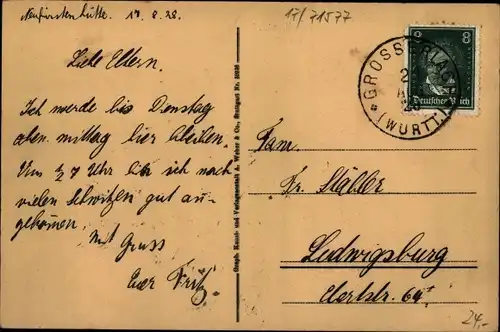 Neufürstenhütte. 19. 8. 28.
17/71577
Liebe Eltern.
Ich werde bis Dienstag
aben. mittag hier bleiben.
Um ½ 7 Uhr bin ich nach
vielen Schwitzen gut an-
gekommen.
Mit Gruss
Euer Fritz.
Graph. Kunst- und Verlagsanstalt A. Weber & Co., Stuttgart Nr.
8 8
Deutsches Reich
GROSSERLACH
(WÜRTT.)
Fam.
Fr. Stäbler
Ludwigsburg
64
24,-